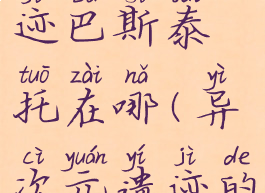 迹巴斯泰
tuō zài nǎ yì
托在哪(异
cì yuán yí jì de
次元遗迹的